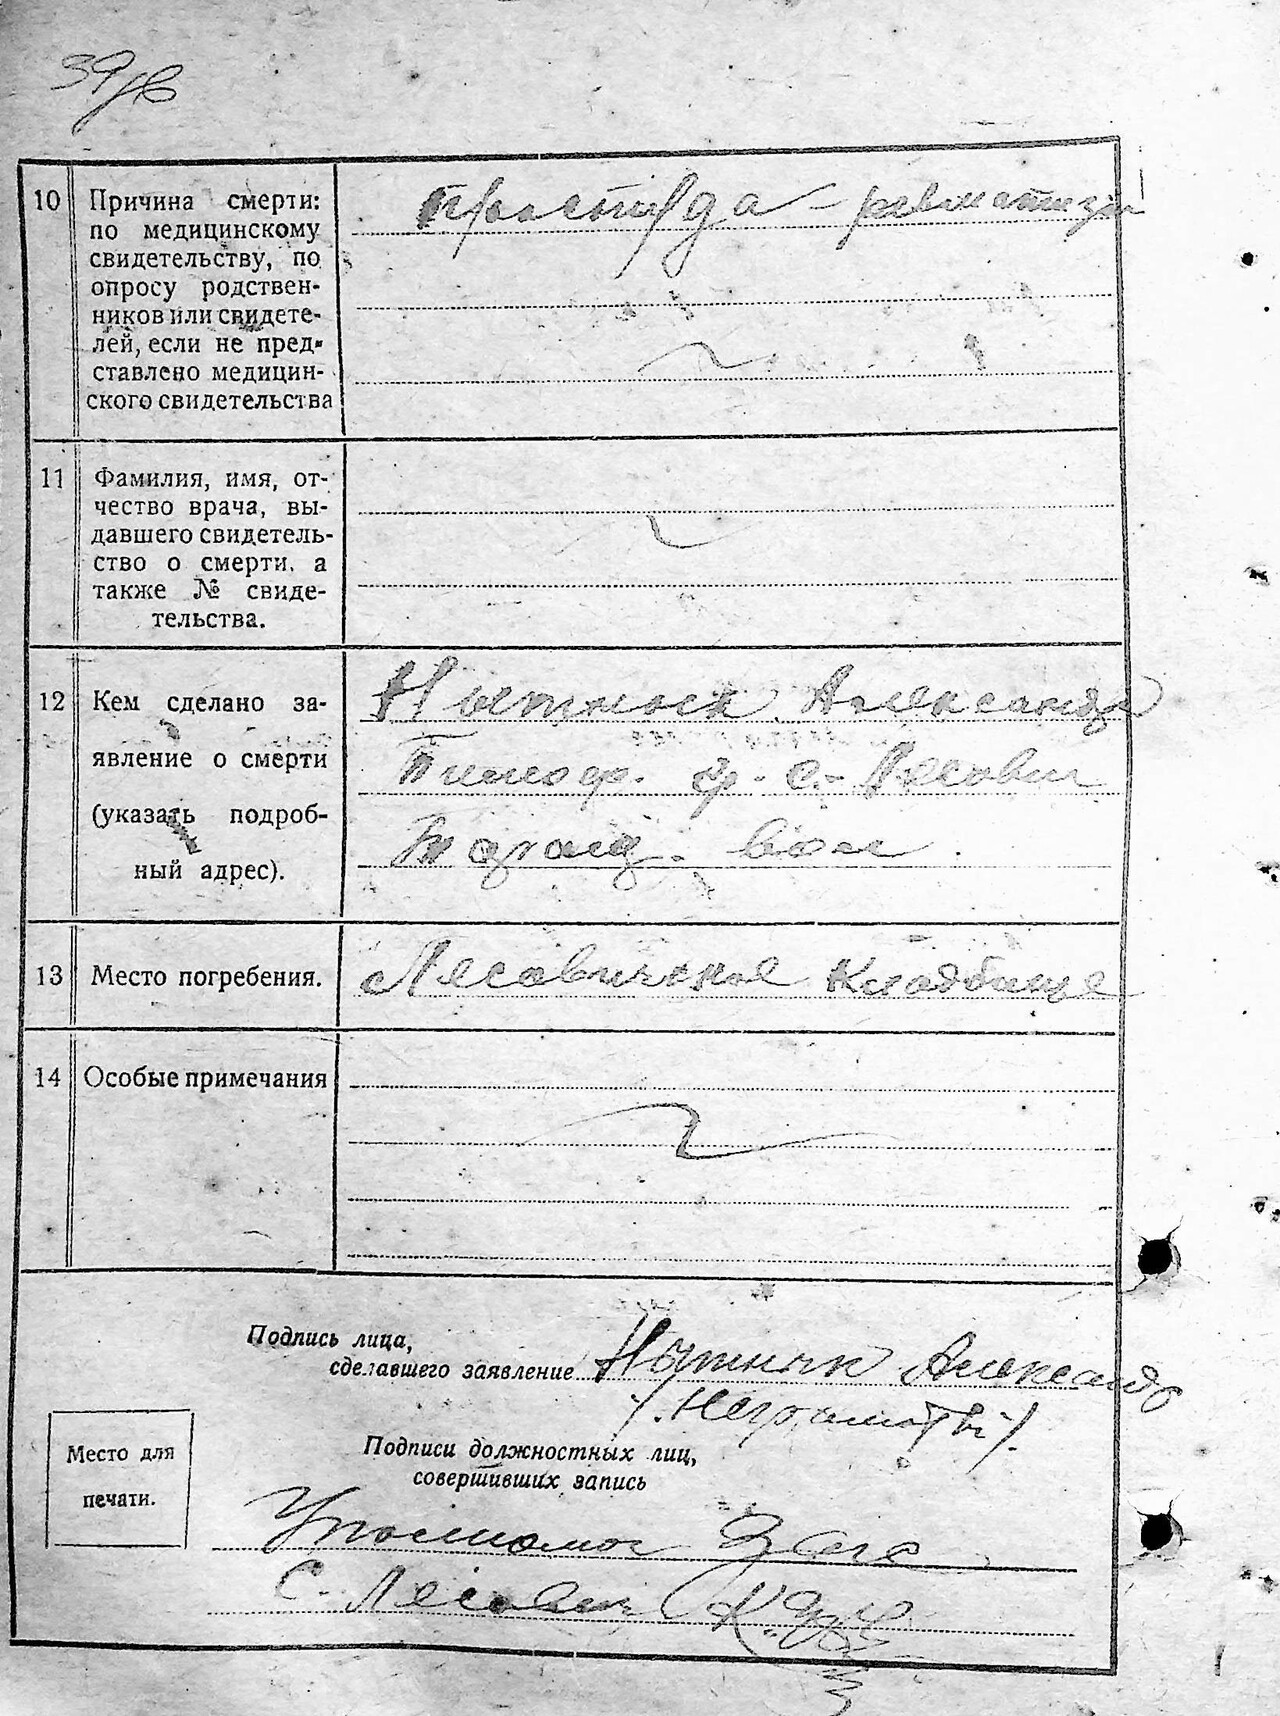 39/
10
Причина смерти:
по медицинскому
свидетельству, по
опросу родствен-
ников или свидете-
лей, если не пред-
ставлено медицин-
ского свидетельства
простуда - ревматизм
11
Фамилия, имя, от-
чество врача, вы-
давшего свидетель-
ство о смерти, а
также № свиде-
тельства.
12
Кем сделано за-
явление о смерти
(указать подроб-
ный адрес).
Александр
Тимоф. гр. с. Лесович
вол.
13
Место погребения.
Лесовичское Кладбище
14
Особые примечания
Подпись лица,
сделавшего заявление Александр
/.Неграмотн/.
Место для
печати.
Подписи должностных лиц,
совершивших запись
Уполномоч Загс
С. Лесович